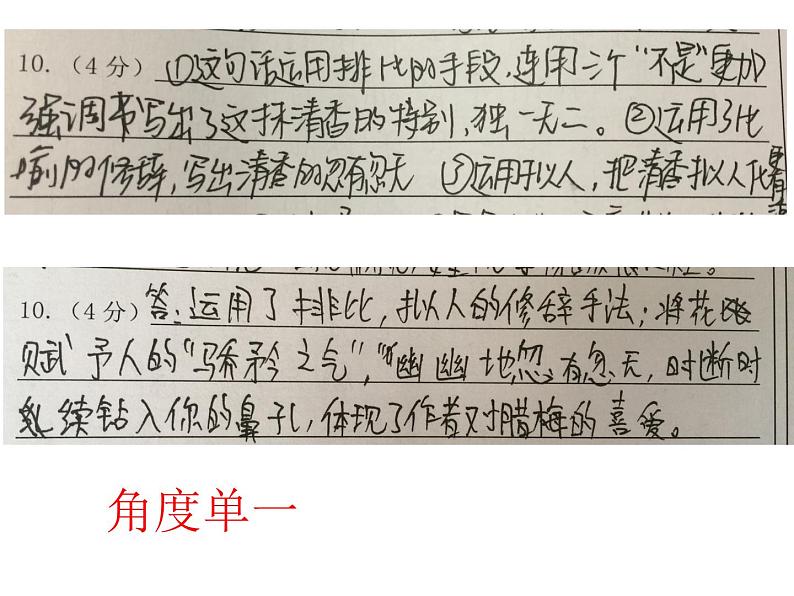 10.（4分）①这句话运用排比的手段，连用三个“不是”更加
强调书写出了这抹清香的特别，独一无二。②运用了比
喻的修辞，写出清香的忽有忽无 ③运用拟人，把清香拟人化
更有
10.（4分）答：运用了排比，拟人的修辞手法；将花
赋予人的“骄矜之气”，“幽幽地忽有忽无，时断时
续钻入你的鼻子”，体现了作者对腊梅的喜爱。
角度单一